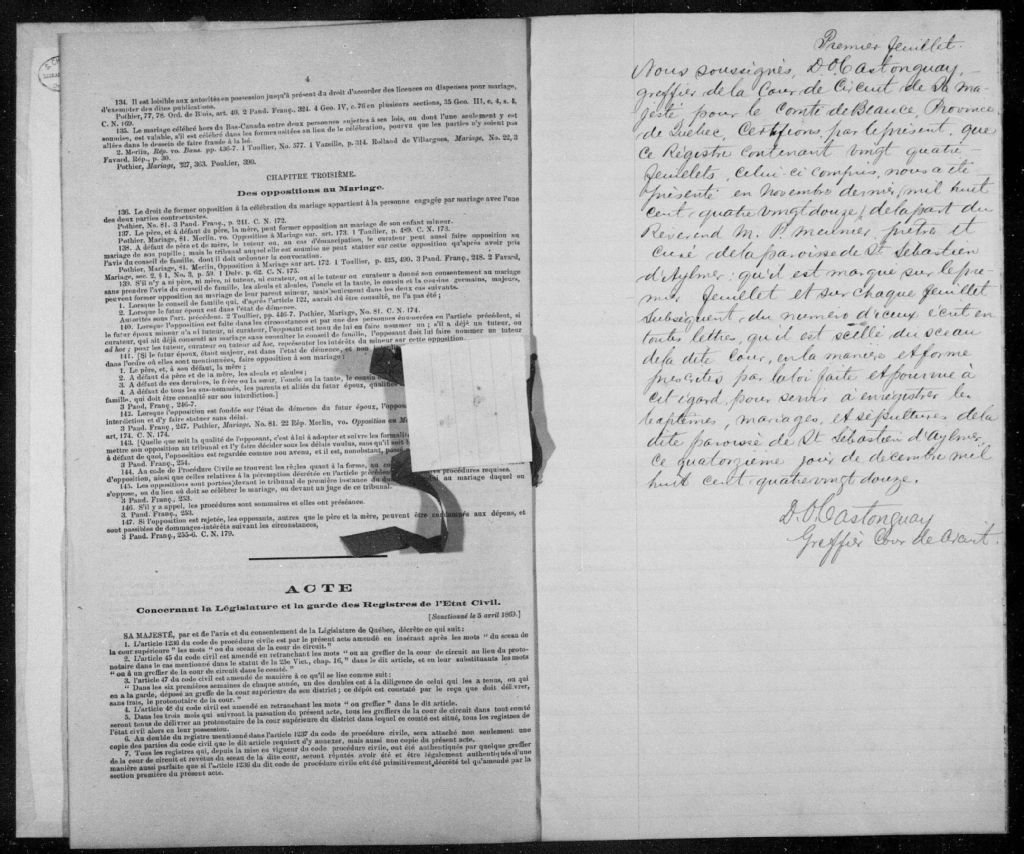 4
134. Il est loisible aux autorités en possession jusqu'à présent du droit d'accorder des licences ou dispenses pour mariage,
d'exempter des dites publications.
Pothier, 77, 78. Ord. de Blois, art. 40. 2 Pand. Franç., 324. 4 Geo. IV, c. 76 en plusieurs sections, 35 Geo. III, c. 4, s. 4,
C. N. 169.
135. Le mariage célébré hors du Bas-Canada entre deux personnes sujettes à ses lois, ou dont l'une seulement y est
soumise, est valable, s'il est célébré dans les formes usitées au lieu de la célébration, pourvu que les parties n'y soient pas
allées dans le dessein de faire fraude à la loi.
2. Merlin, Rép. vo. Bans. pp. 436-7. 1 Toullier, No. 577. 1 Vazeille, p. 314. Rolland de Villargues, Mariage, No. 22, 3
Favard, Rép., p. 30.
Pothier, Mariage, 227, 363. Pouhier, 390.
CHAPITRE TROISIÈME.
Des oppositions au Mariage.
136. Le droit de former opposition à la célébration du mariage appartient à la personne engagée par mariage avec l'une
des deux parties contractantes.
Pothier, No. 81. 3 Pand. Franç., p. 241. C. N. 172.
137. Le père, et à défaut du père, la mère, peut former opposition au mariage de son enfant mineur.
Pothier, Mariage, 81. Merlin, vo. Opposition à Mariage sur. art. 173. 1 Toullier, p. 489. C. N. 173.
138. A défaut de père et de mère, le tuteur ou, au cas d'émancipation, le curateur peut aussi faire opposition au
mariage de son pupille; mais le tribunal auquel elle est soumise ne peut statuer sur cette opposition qu'après avoir pris
l'avis du conseil de famille, dont il doit ordonner la convocation.
Pothier, Mariage, 81. Merlin, Opposition à Mariage sur art. 172. 1 Toullier, p. 425, 490. 3 Pand. Franç., 248. 2 Favard,
Mariage, sec. 2, § 1, No. 3, p. 59. 1 Delv. p. 62. C. N. 175.
139. S'il n'y a ni père, ni mère, ni tuteur, ni curateur, ou si le tuteur ou curateur a donné son consentement au mariage
sans prendre l'avis du conseil de famille, les aïeuls et aïeules, l'oncle et la tante, le cousin et la cousine germains, majeurs,
peuvent former opposition au mariage de leur parent mineur, mais seulement dans les deux cas suivants.
1. Lorsque le conseil de famille qui, d'après l'article 122, aurait dû être consulté, ne l'a pas été;
2. Lorsque le futur époux est dans l'état de démence.
Autorités sous l'art. précédent. 2 Toullier, pp. 446-7. Pothier, Mariage, No. 81. C. N. 174.
140. Lorsque l'opposition est faite dans les circonstances et par une des personnes énumérées en l'article précédent, si
le futur époux mineur n'a ni tuteur, ni curateur, l'opposant est tenu de lui en faire nommer un; s'il a déjà un tuteur, ou
curateur, qui ait déjà consenti au mariage sans consulter le conseil de famille, l'opposant doit lui faire nommer un tuteur
ad hoc; pour les tuteur, curateur ou tuteur ad hoc, représenter les intérêts du mineur sur cette opposition.
141. [Si le futur époux, étant majeur, est dans l'état de démence, et non
dans l'ordre où elles sont mentionnées, faire opposition à son mariage:
1. Le père, et, à son défaut, la mère;
2. A défaut du père et de la mère, les aïeuls et aïeules;
3. A défaut de ces derniers, le frère ou la sœur, l'oncle ou la tante, le cousin
4. A défaut de tous les sus-nommés, les parents et alliés du futur époux, qualifiés
famille, qui doit être consulté sur son interdiction.]
3 Pand. Franç., 246-7.
142. Lorsque l'opposition est fondée sur l'état de démence du futur époux, l'oppos
interdiction et d'y faire statuer sans délai.
3 Pand. Franç., 247. Pothier, Mariage, No. 81. 22 Rép. Merlin, vo. Opposition au M
art, 174. C. N. 174.
143. [Quelle que soit la qualité de l'opposant, c'est à lui à adopter et suivre les formalit
mettre son opposition au tribunal et l'y faire décider sous les délais voulus, sans qu'il soit
à défaut de quoi, l'opposition est regardée comme non avenu, et il est, nonobstant, passé
3 Pand. Franç., 254.
144. Au code de Procédure Civile se trouvent les règles quant à la forme, au co
d'opposition, ainsi que celles relatives à la péremption décrétée en l'article précéd procédures requises.
145. Les oppositions sont portées devant le tribunal de première instance du au mariage duquel on
s'oppose, ou du lieu où doit se célébrer le mariage, ou devant un juge de ce tribunal.
3 Pand. Franç., 253.
146. S'il y a appel, les procédures sont sommaires et elles ont préséance.
3 Pand. Franç., 253.
147. Si l'opposition est rejetée, les opposants, autres que le père et la mère, peuvent être condamnés aux dépens, et
sont passibles de dommages-intérêts suivant les circonstances,
3 Pand. Franç., 255-6. C. N. 179.
ACTE
Concernant la Législature et la garde des Registres de l'Etat Civil.
[Sanctionné le 5 avril 1869.]
SA MAJESTÉ, par et de l'avis et du consentement de la Législature de Québec, décrète ce qui suit:
1. L'article 1236 du code de procédure civile est par le présent acte amendé en insérant après les mots "du sceau de
la cour supérieure" les mots "ou du sceau de la cour de circuit."
2. L'article 45 du code civil est amendé en retranchant les mots "ou au greffier de la cour de circuit au lieu du proto-
notaire dans le cas mentionné dans le statut de la 25e Vict., chap. 16," dans le dit article, et en leur substituants les mots
"ou à un greffier de la cour de circuit dans le comté."
3. l'article 47 du code civil est amendé de manière à ce qu'il se lise comme suit:
"Dans les six premières semaines de chaque année, un des doubles est à la diligence de celui qui les a tenus, ou qui
en a la garde, déposé au greffe de la cour supérieure de son district; ce dépôt est constaté par le reçu que doit délivrer,
sans frais, le protonotaire de la cour."
4. L'article 48 du code civil est amendé en retranchant les mots "ou greffier" dans le dit article.
5. Dans les trois mois qui suivront la passation du présent acte, tous les greffiers de la cour de circuit dans tout comté
seront tenus de délivrer au protonotaire de la cour supérieure du district dans lequel ce comté est situé, tous les registres de
l'état civil alors en leur possession.
6. Au double du registre mentionné dans l'article 1237 du code de procédure civile, sera attaché non seulement une
copie des parties du code civil que le dit article requiert d'y annexer, mais aussi une copie du présent acte.
7. Tous les registres qui, depuis la mise en vigueur du code procédure civile, ont été authentiqués par quelque greffier
de la cour de circuit et revêtus du sceau de la dite cour, seront réputés avoir été et être légalement authentiqués d'une
manière aussi parfaite que si l'article 1236 du dit code de procédure civile eût été primitivement décrété tel qu'amendé par la
section première du présent acte.
Premier feuillet.
Nous soussignés, D. O. Castonguay,
greffier de la Cour de Circuit de Sa Ma-
jesté pour le Comté de Beauce, Province
de Québec, Certifions, par le présent, que
ce Régistre contenant vingt quatre
feuillets, celui-ci compris, nous a été
présenté en Novembre dernier, mil huit
cent quatre vingt douze, de la part du
Révérend M. P. Meunier, prêtre et
curé de la paroisse de St Sébastien
d'Aylmer; qu'il est marqué sur le pre-
mier feuillet et sur chaque feuillet
subséquent, du numéro d'iceux écrit en
toutes lettres, qu'il est scellé du sceau
de la dite Cour, en la manière et forme
prescrites par la loi faite et pourvue à
cet égard, pour servir à enregistrer les
baptêmes, mariages, et sépultures de la
dite paroisse de St Sébastien d'Aylmer,
ce quatorzième jour de décembre mil
huit cent quatre vingt douze.
D. O. Castonguay
Greffier Cour de Circuit.